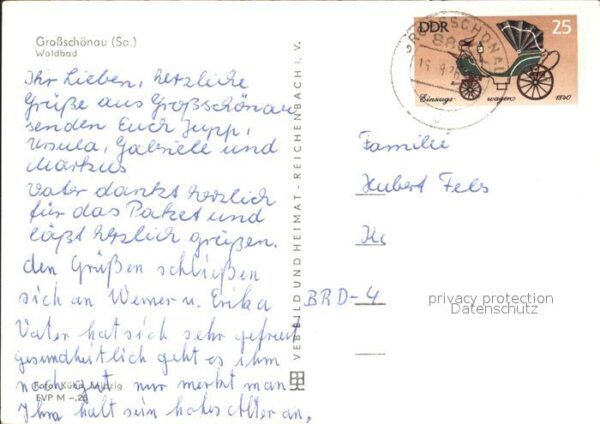 Großschönau (Sa.)
Waldbad
Ihr Lieben, herzliche
Grüße aus Großschönau
senden Euch Jupp,
Ursula, Gabriele und
Markus
Vater dankt herzlich
für das Paket und
läßt herzlich grüßen.
den Grüßen schließen
sich an Werner u. Erika
Vater hat sich sehr gefreut
gesundheitlich geht es ihm
noch gut nur merkt man
Ihm halt sein hohes Alter an,
EVP M -,20
VEB BILD UND HEIMAT · REICHENBACH i. V.
DDR 25
Einzugs- wagen 1840
GROSSSCHÖNAU
Familie
Hubert Fels
BRD-4
privacy protection
Datenschutz